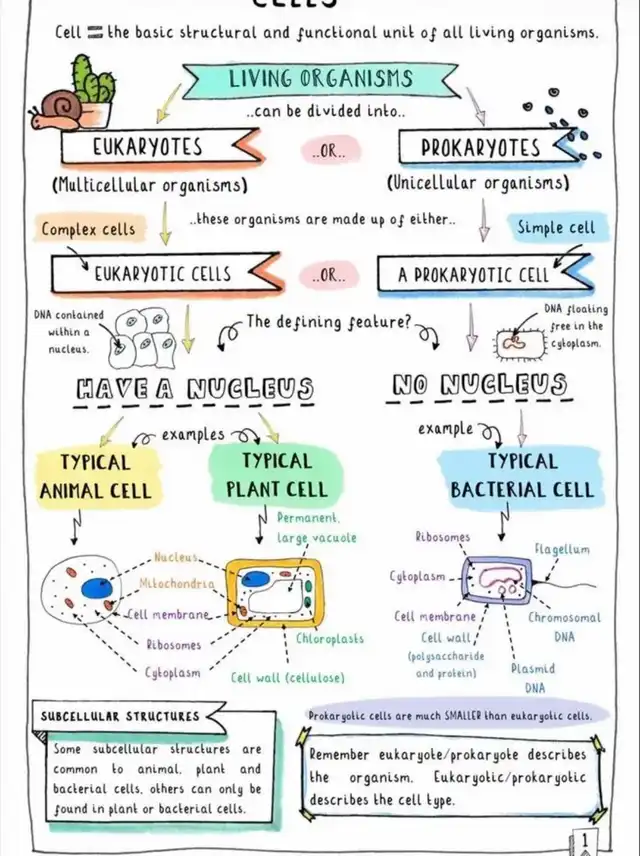 CELLS
Cell = the basic structural and functional unit of all living organisms.
LIVING ORGANISMS
..can be divided into..
EUKARYOTES
..OR..
PROKARYOTES
(Multicellular organisms)
(Unicellular organisms)
Complex cells
..these organisms are made up of either..
Simple cell
EUKARYOTIC CELLS
..OR..
A PROKARYOTIC CELL
DNA contained
within a
nucleus.
The defining feature?
DNA floating
free in the
cytoplasm.
HAVE A NUCLEUS
NO NUCLEUS
examples
example
TYPICAL
ANIMAL CELL
TYPICAL
PLANT CELL
TYPICAL
BACTERIAL CELL
Permanent,
large vacuole
Nucleus
Mitochondria
Cell membrane
Ribosomes
Cytoplasm
Chloroplasts
Cell wall (cellulose)
Ribosomes
Cytoplasm
Cell membrane
Cell wall
(polysaccharide
and protein)
Flagellum
Chromosomal
DNA
Plasmid
DNA
SUBCELLULAR STRUCTURES
Some subcellular structures are
common to animal, plant and
bacterial cells, others can only be
found in plant or bacterial cells.
Prokaryotic cells are much SMALLER than eukaryotic cells.
Remember eukaryote/prokaryote describes
the organism. Eukaryotic/prokaryotic
describes the cell type.
1